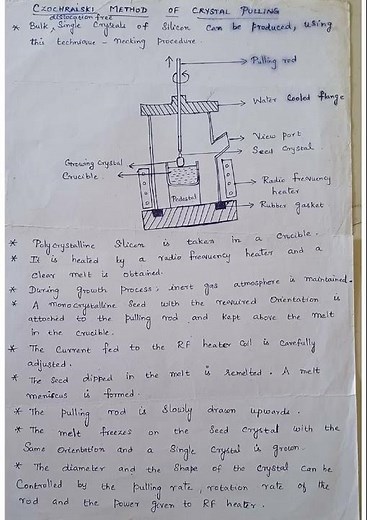 CZOCHRALSKI METHOD OF CRYSTAL PULLING
dislocation free
* Bulk, Single Crystals of Silicon can be produced, using
this technique - necking procedure.
Pulling rod
Water Cooled flange
View port
Seed Crystal
Growing Crystal
Crucible
Radio frequency
heater
Pedestal
Rubber gasket
* Polycrystalline Silicon is taken in a Crucible.
* It is heated by a radio frequency heater and a
Clear melt is obtained.
* During growth process, inert gas atmosphere is maintained.
* A monocrystalline Seed with the required Orientation is
attached to the pulling rod and kept above the melt
in the crucible.
* The Current fed to the RF heater Coil is Carefully
adjusted.
* The Seed dipped in the melt is remelted. A melt
meniscus is formed.
* The pulling rod is slowly drawn upwards.
* The melt freezes on the Seed Crystal with the
Same Orientation and a Single Crystal is grown.
* The diameter and the Shape of the Crystal can be
Controlled by the pulling rate, rotation rate of the
rod and the Power given to RF heater.